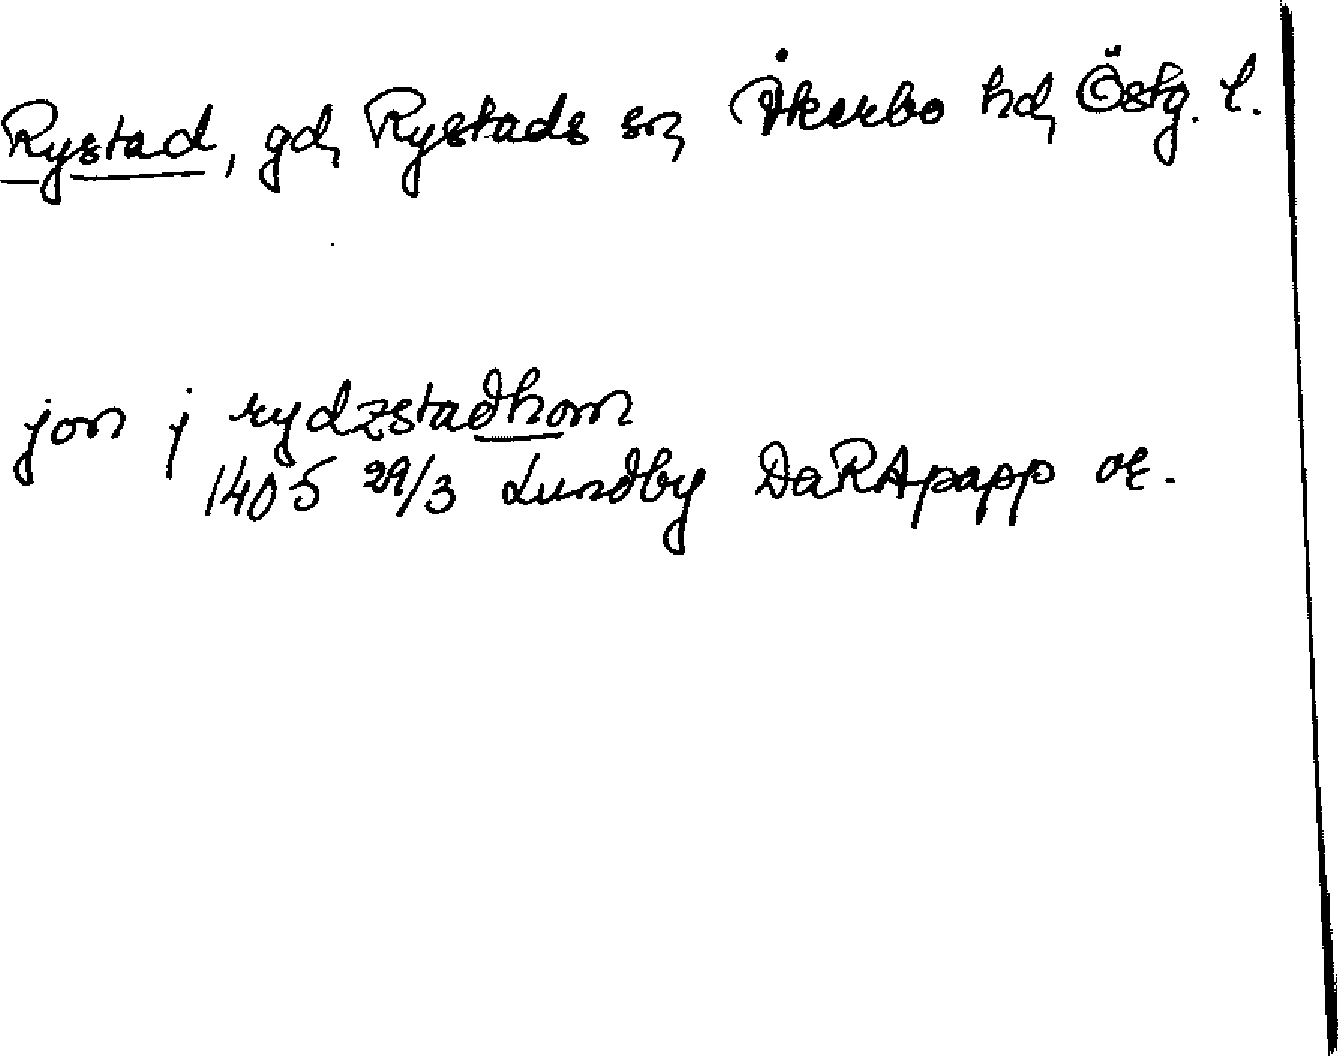 Rystad, gd, Rystads sn, Åkerbo hd, Östg. l.
jon j rydzstadhom
1405 29/3 Lundby DaRApapp or.